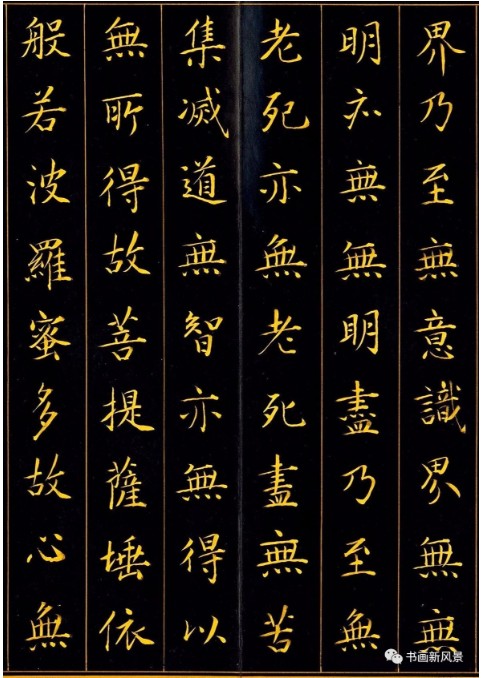 界乃至無意識界無無
明亦無無明盡乃至無
老死亦無老死盡無苦
集滅道無智亦無得以
無所得故菩提薩埵依
般若波羅蜜多故心無
书画新风景